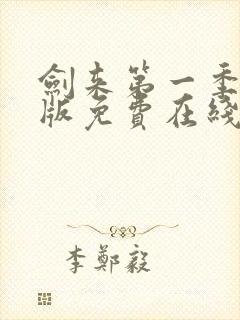 劍来第一季
版免費在綫
李鄭毅